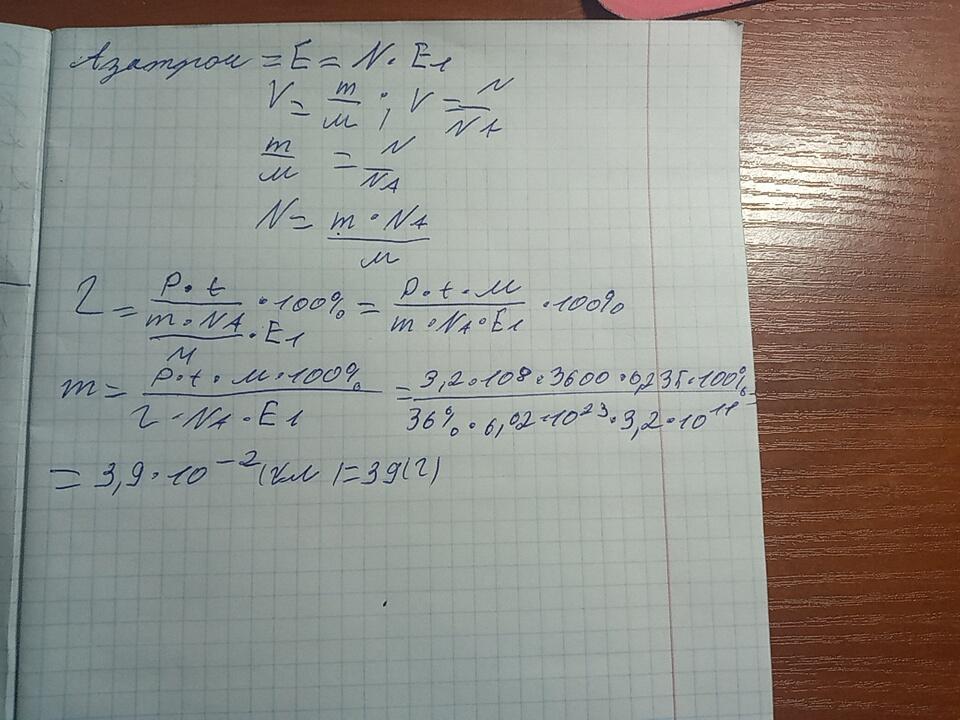 Aзатрон = E = N · E1
V = m/м ; V = N/NA
m/м = N/NA
N = m · NA / м
η = P · t / (m · NA / M · E1) · 100% = P · t · M / (m · NA · E1) · 100%
m = P · t · м · 100% / (η · NA · E1) = 3,2 · 10⁸ · 3600 · 0,235 · 100% / (36% · 6,02 · 10²³ · 3,2 · 10⁻¹¹) =
= 3,9 · 10⁻² (кг) = 39 (г)